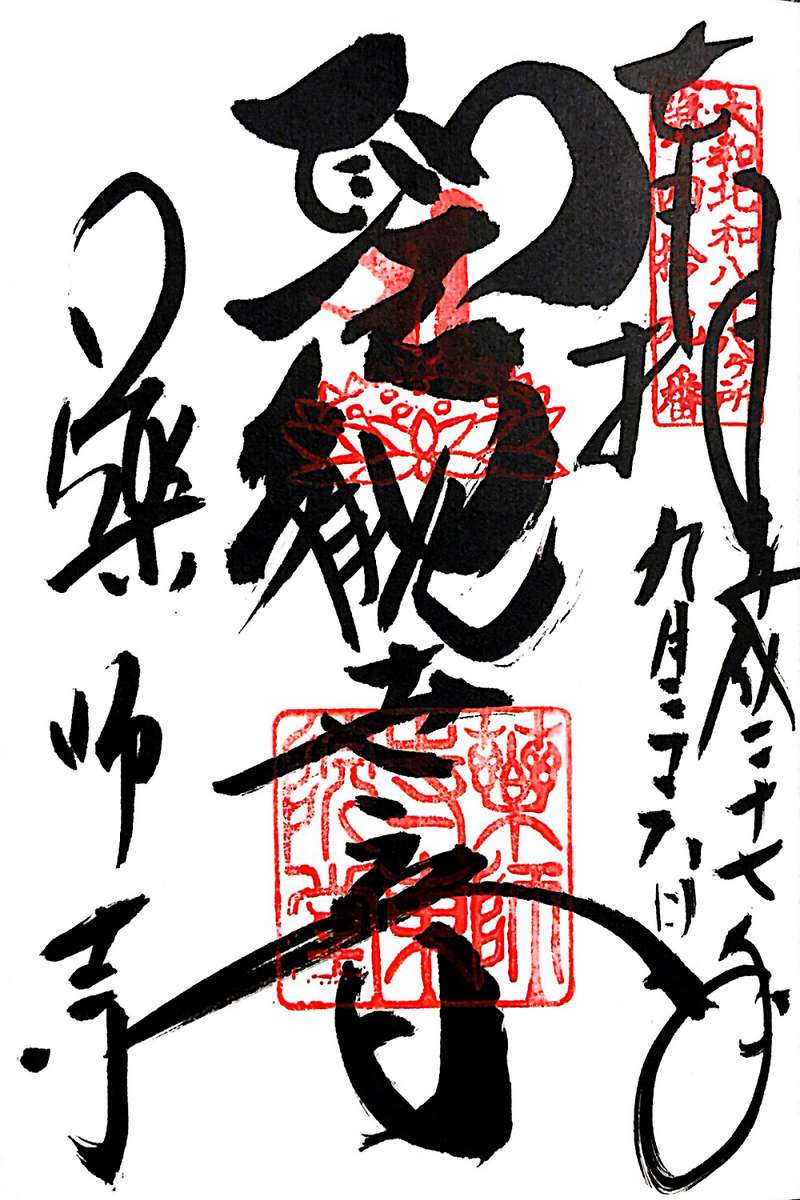 奉拝
平成二十七年
九月二十六日
大和北和八十八ヶ所
第四拾九番
聖観世音
薬師寺
薬師
寺東
院堂